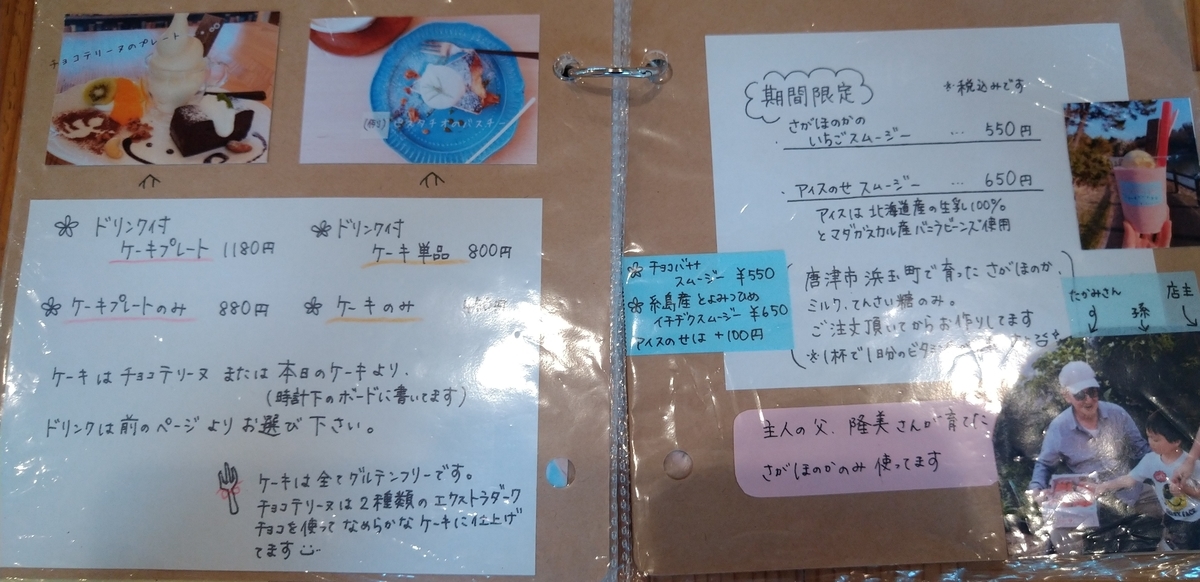 チョコテリーヌのプレート
ドリンク付
ケーキプレート 1180円
ドリンク付
ケーキ単品 800円
ケーキプレートのみ 880円
ケーキのみ
ケーキはチョコテリーヌ または 本日のケーキより、
(時計下のボードに書いてます)
ドリンクは前のページよりお選び下さい。
ケーキは全てグルテンフリーです。
チョコテリーヌは2種類のエクストラダーク
チョコを使ってなめらかなケーキに仕上げ
てます
期間限定
※税込みです
さがほのかの
いちごスムージー … 550円
・アイスのせスムージー … 650円
アイスは北海道産の生乳100%
とマダガスカル産バニラビーンズ使用
チョコバナナ
スムージー ¥550
糸島産とよみつひめ
イチヂクスムージー ¥650
アイスのせは +100円
唐津市浜玉町で育ったさがほのか、
ミルク、てんさい糖のみ。
ご注文頂いてからお作りしてます
※1杯で1日分のビタミン
たかみさん
孫
店主
主人の父、隆美さんが育てた
さがほのかのみ使ってます